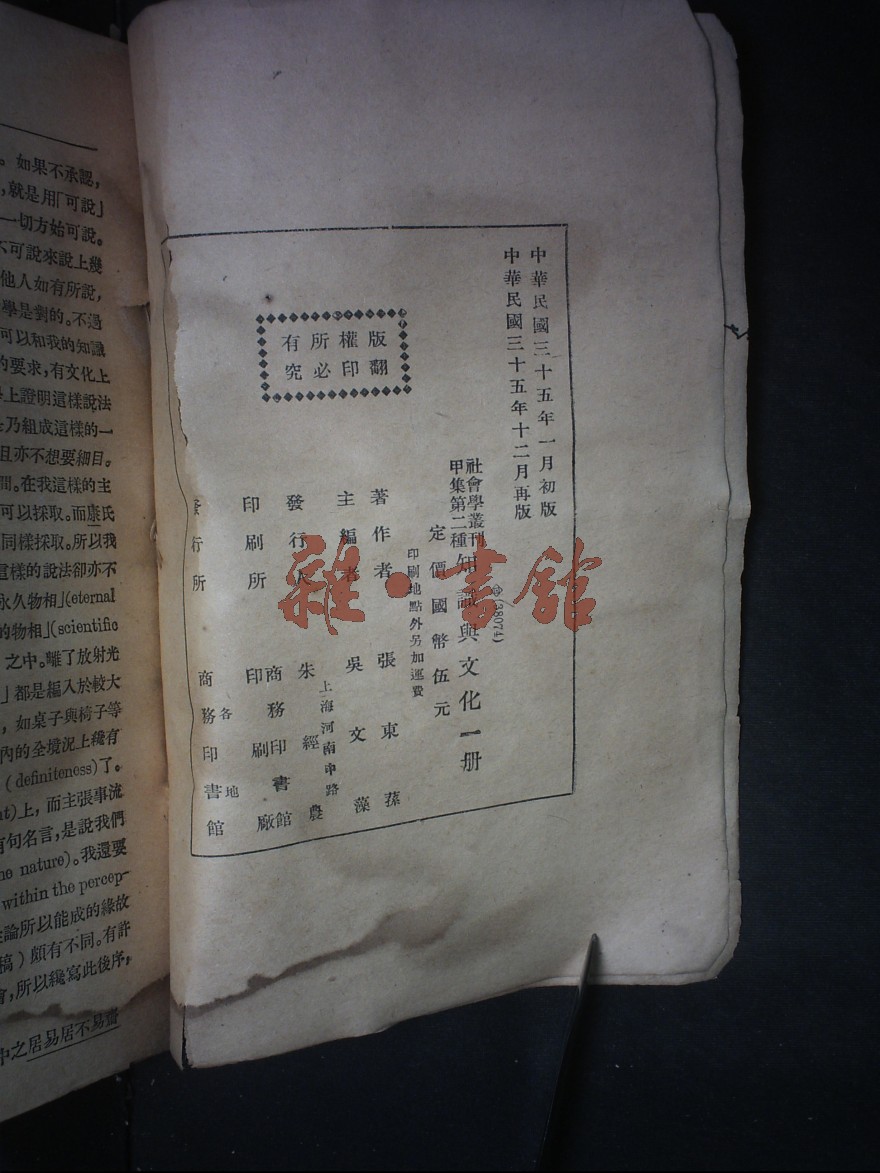 中華民國三十五年一月初版
中華民國三十五年十二月再版
社會學叢刊
甲集第二種
知識與文化一册
(38074)
定價國幣伍元
印刷地點外另加運費
版權所有
翻印必究
著作者 張東蓀
主編者 吳文藻
發行人 朱經農
上海河南中路
印刷所 商務印書館
印刷廠
發行所 各地
商務印書館
雜·書館
。如果不承認,
,就是用「可說」
一切方始可說。
不可說來說上幾
他人如有所說,
學是對的。不過
可以和我的知識
的要求,有文化上
上證明這樣說法
乃組成這樣的一
且亦不想要細目。
間。在我這樣的主
可以採取。而康氏
同樣採取。所以我
這樣的說法卻亦不
永久物相」(eternal
的物相」(scientific
之中。離了放射光
」都是編入於較大
,如桌子與椅子等
內的全境況上纔有
(definiteness)了。
上,而主張事流
有句名言,是說我們
nature)。我還要
within the percep-
論所以能成的緣故
稿)頗有不同。有許
會,所以纔寫此後序,
中之居易居不易齋